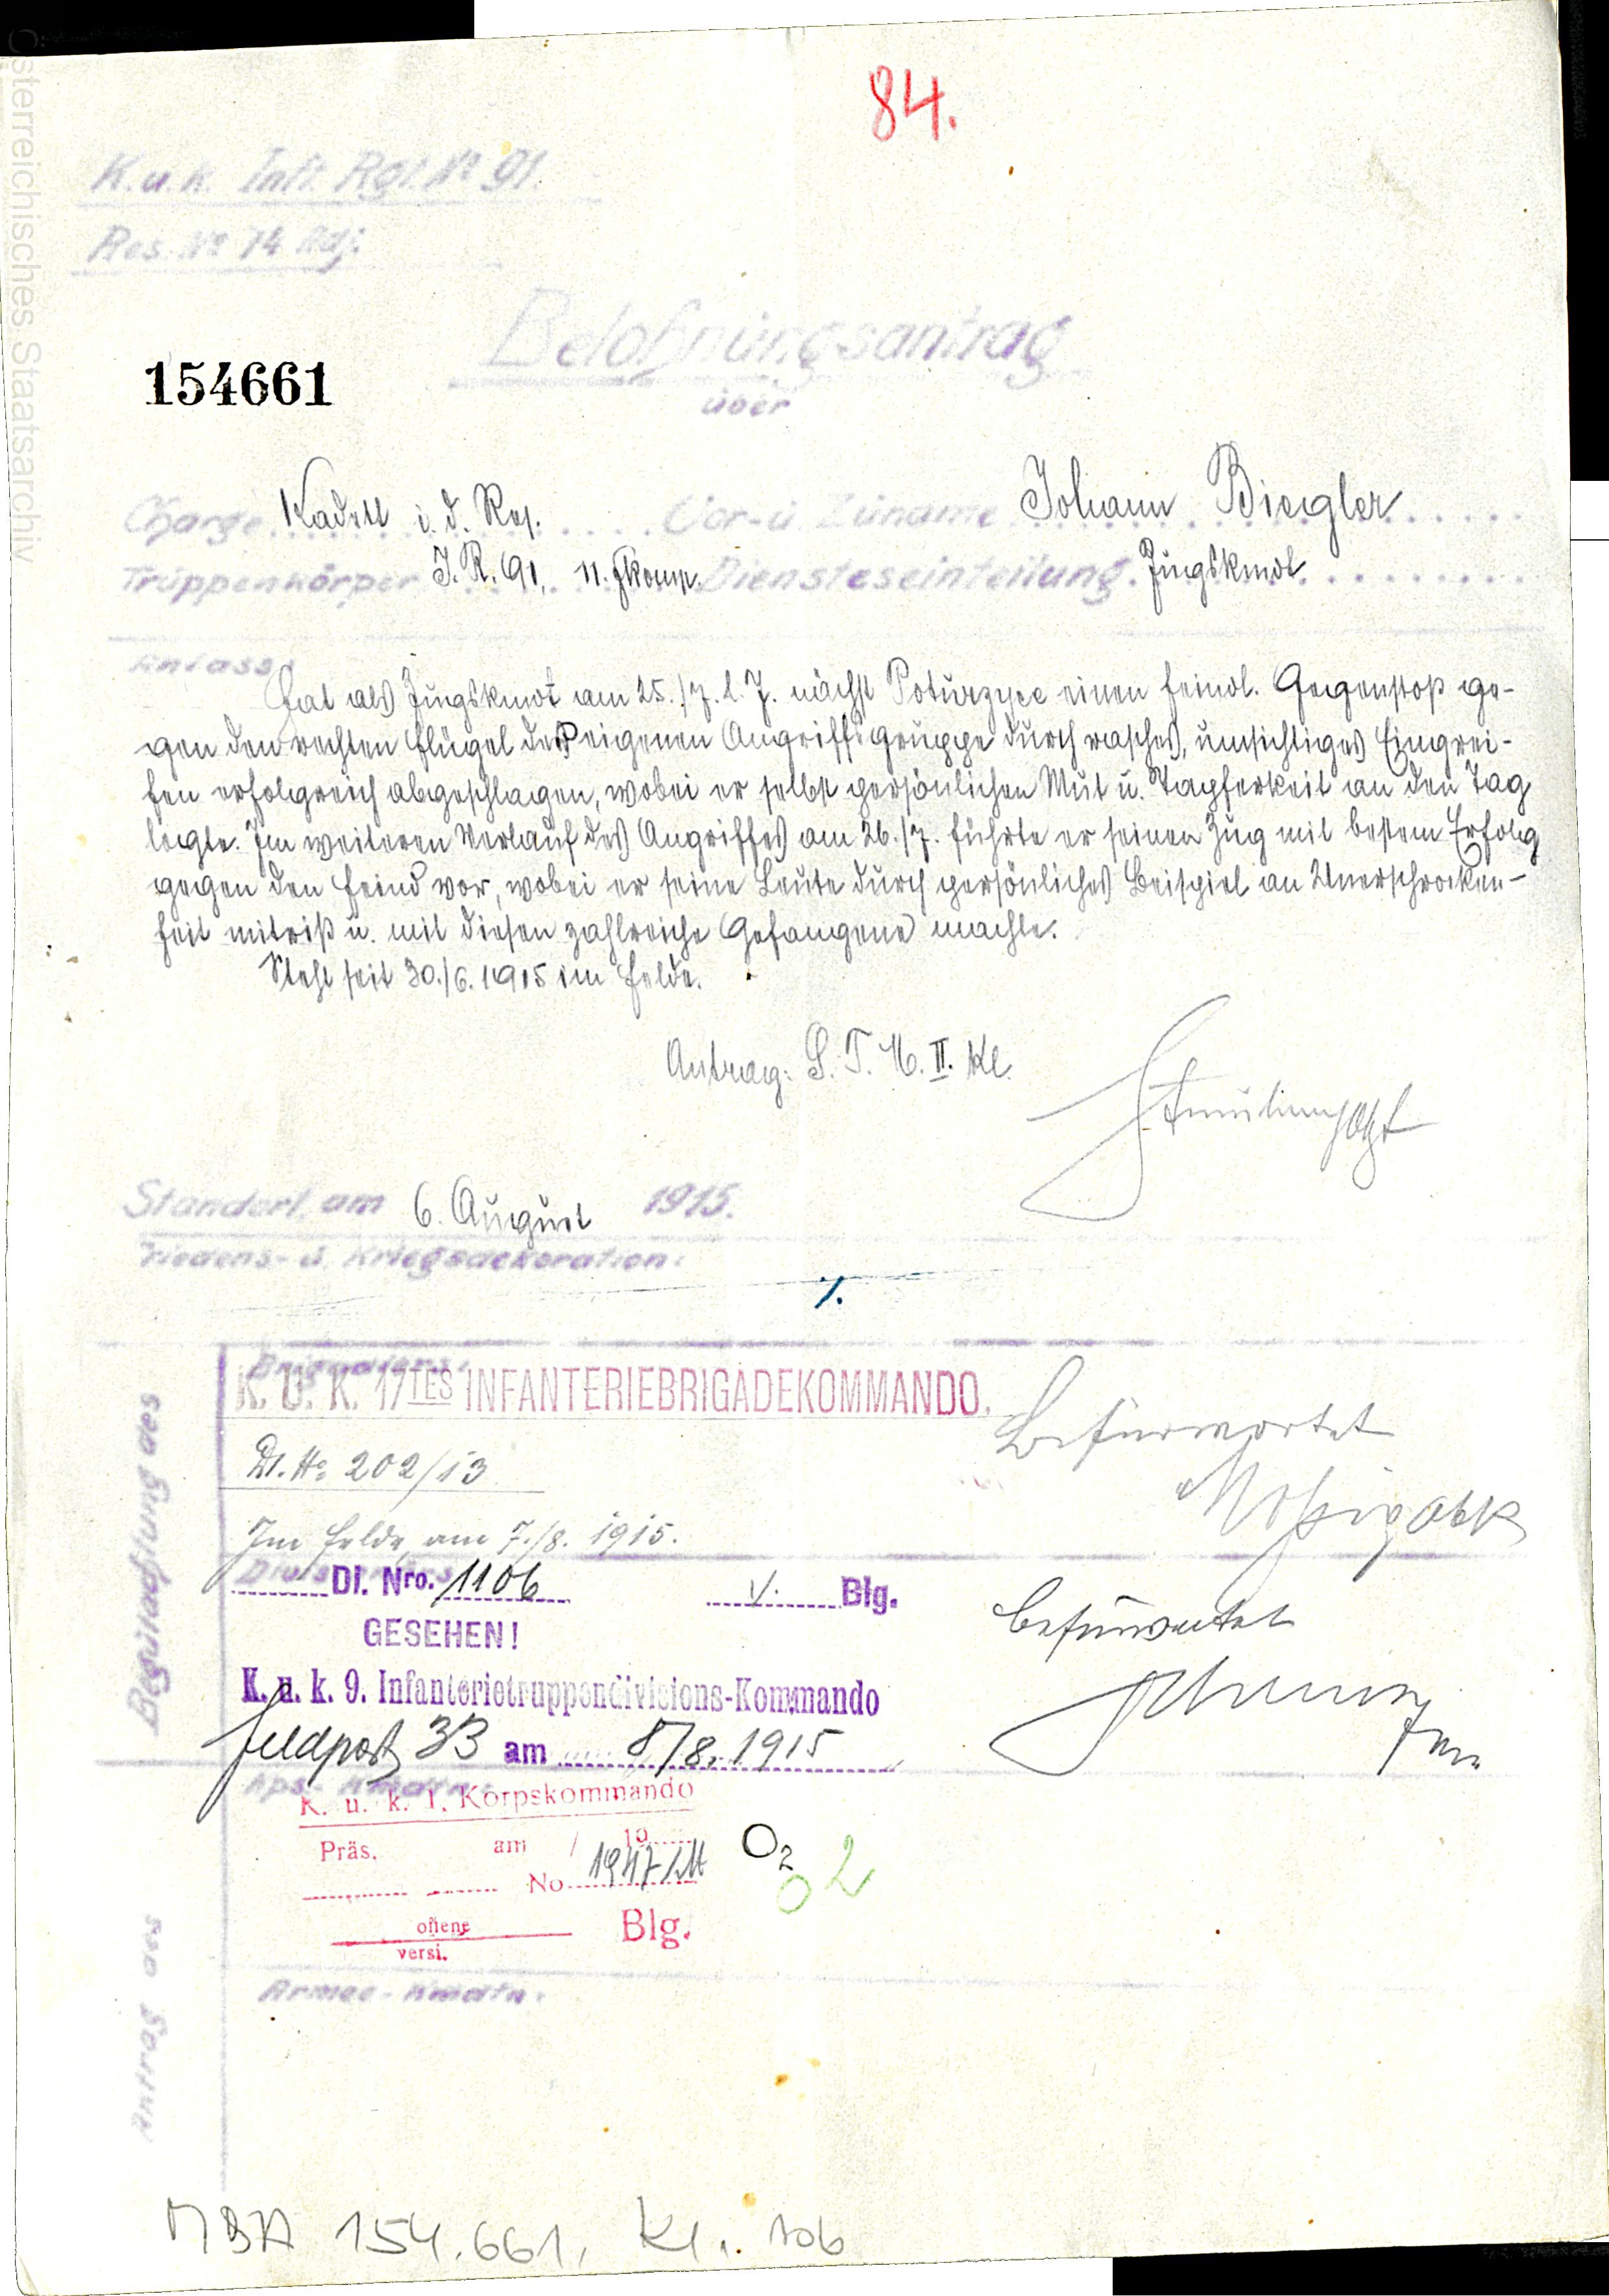 Österreichisches Staatsarchiv
84.
K.u.k. Inft. Rgt. № 91.
Res. № 74 Adj.
Belohnungsantrag
154661
über
Charge Kadett i. d. Res. Vor- u Zuname Johann Biegler
Truppenkörper I. R. 91, 11. Fkomp. Diensteseinteilung. Zugskmdt
Anlass:
Hat als Zugskmdt am 25./7. l. J. nächst Poturzyce einen feindl. Gegenstoß ge-
gen den rechten Flügel der eigenen Angriffsgruppe durch rasches, umsichtiges Eingrei-
fen erfolgreich abgeschlagen, wobei er selbst persönlichen Mut u. Tapferkeit an den Tag
legte. Im weiteren Verlauf des Angriffes am 26./7. führte er seinen Zug mit bestem Erfolg
gegen den Feind vor, wobei er seine Leute durch persönliches Beispiel an Unerschrocken-
heit mitriß u. mit diesen zahlreiche Gefangene machte.
Steht seit 30./6. 1915 im Felde.
Antrag: S. T. M. II. Kl.
Standort, am 6. August 1915.
Friedens- u. Kriegsdekoration:
%.
Begutachtung des
Brigadiers:
K. U. K. 17TES INFANTERIEBRIGADEKOMMANDO.
Befürwortet
Dt. No 202/13
Im Felde, am 7./8. 1915.
DI. Nro. 1106 Blg.
GESEHEN!
befürwortet
K. u. k. 9. Infanterietruppendivisions-Kommando
Feldpost 33 am 8/8. 1915
Kps- Kmdtn:
K. u. k. I. Korpskommando
Präs. am / 19
No
O2
02
offene
versi.
Blg.
Antrag des
Armee-Kmdtn:
MBA 154.661, Kt. 106